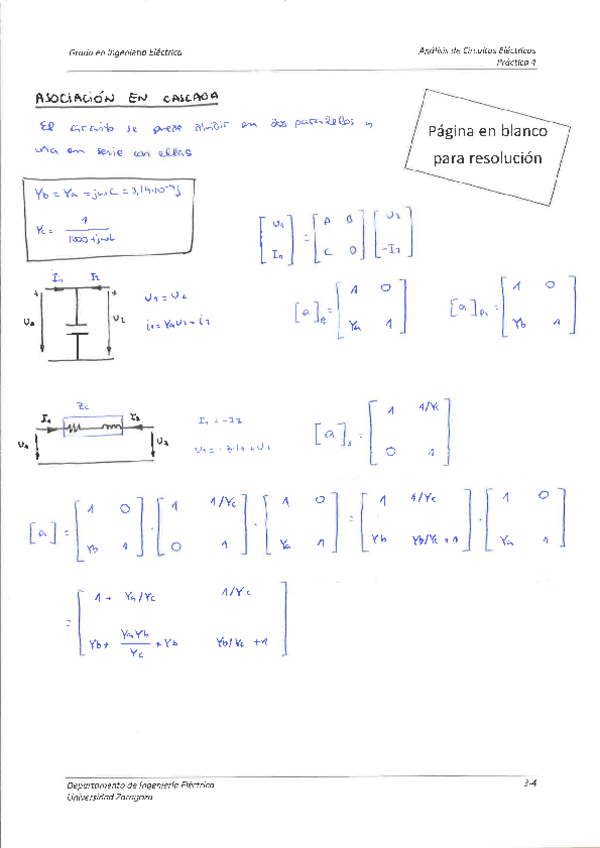 Grado en Ingeniería Eléctrica
Análisis de Circuitos Eléctricos
Práctica 4
ASOCIACIÓN EN CASCADA
Página en blanco
para resolución
El circuito se puede dividir en dos paralelos y
una en serie con ellas
Yb = Ya = jωC = 3,14·10⁻⁴j
Yc = 1 / 1000+jωL
[U1 I1] = [A B C D] [U2 -I2]
I1 I2
U1 U2
U1 = U2
i1 = YaU2 - i2
[a] = [1 0 Ya 1]
[a]P2 = [1 0 Yb 1]
Zc
I1 I2
U1 U2
I1 = -I2
[a]s = [1 1/Yc 0 1]
[a] = [1 0 Yb 1] · [1 1/Yc 0 1] · [1 0 Ya 1] = [1 1/Yc Yb Yb/Yc + 1] · [1 0 Ya 1]
= [1 + Ya/Yc 1/Yc Yb + YaYb/Yc + Yb Yb/Yc + 1]
Departamento de Ingeniería Eléctrica
Universidad Zaragoza
3-4